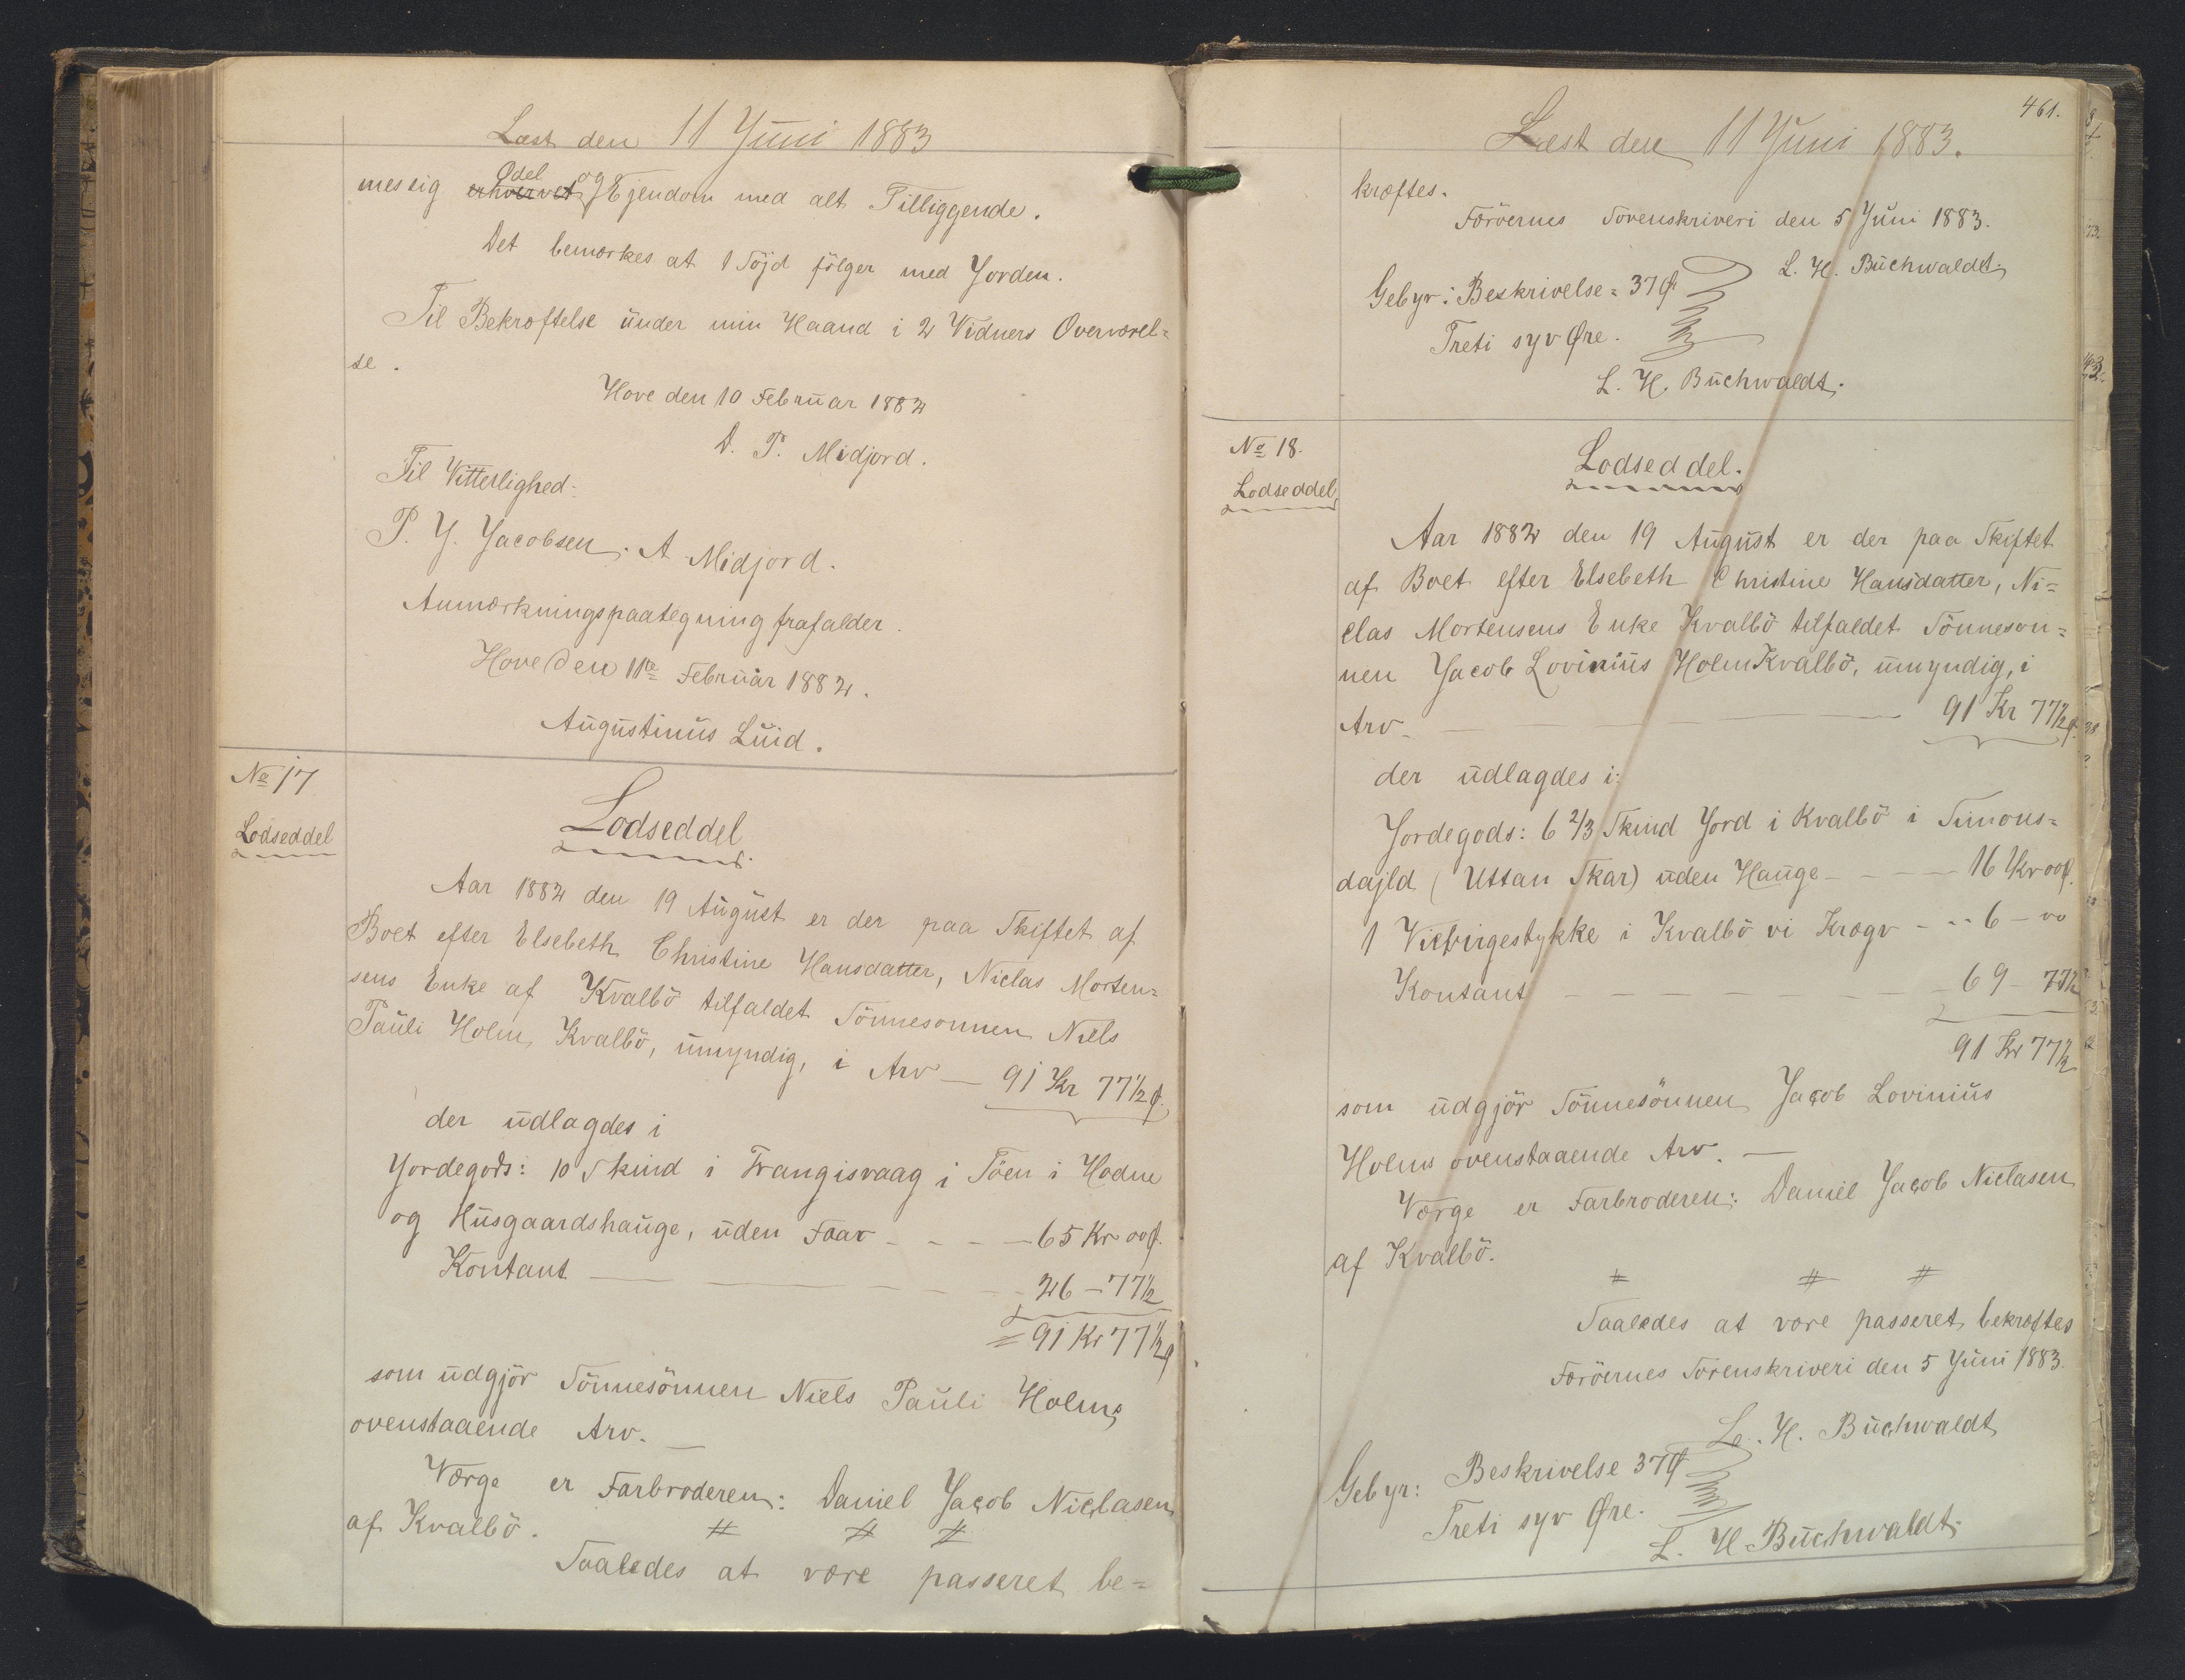 Læst den 11 Juni 1883
Odel og
messig erhvervet Ejendom med alt Tilliggende.
Det bemærkes at 1 Töjd fölger med Jorden.
Til Bekræftelse under min Haand i 2 Vidners Overværel=
se.
Hove den 10 Februar 1882
D. P. Midjord.
Til Vitterlighed:
P. J. Jacobsen. A Midjord.
Anmærkningspaategning frafalder.
Hove den 11te Februar 1882.
Augustinus Luid.
No 17
Lodseddel
Lodseddel
Aar 1882 den 19 August er der paa Skiftet af
Boet efter Elsebeth Christine Hansdatter, Niclas Morten=
sens Enke af Kvalbö tilfaldet Sönnesonnen Niels
Pauli Holm, Kvalbö, umyndig, i Arv — 91 Kr 77½ Ø.
der udlagdes i
Jordegods: 10 Skind i Trangisvaag i Töen i Hodne
og Husgaardshauge, uden Faar - - - 65 Kr 00 Ø.
Kontant — — - - - 26 - 77½
= 91 Kr 77½ Ø
som udgjör Sönnesönnen Niels Pauli Holms
ovenstaaende Arv. —
Værge er Farbroderen: Daniel Jacob Niclasen
af Kvalbö. # # #
Saaledes at være passeret be=
461.
Læst den 11 Juni 1883.
kræftes.
Færöernes Sorenskriveri den 5 Juni 1883.
L. H. Buchwaldt.
Gebyr: Beskrivelse = 37 Ø
Treti syv Øre.
L. H. Buchwaldt.
No 18.
Lodseddel
Lodseddel.
Aar 1882 den 19 August er der paa Skiftet
af Boet efter Elsebeth Christine Hansdatter, Ni=
clas Mortensens Enke Kvalbö tilfaldet Sönneson=
nen Jacob Lovinius Holm Kvalbö, umyndig, i
Arv - — — — 91 Kr 77½ Ø.
der udlagdes i:
Jordegods: 6 2/3 Skind Jord i Kvalbö i Simons=
dajld (Uttan Skar) uden Hauge - - - - 16 Kr 00 Ø.
1 Viebirgestykke i Kvalbö vi Krægv - - - 6 - 00
Kontant - - - - - - - 69 - 77½
91 Kr 77½
som udgjör Sönnesönnen Jacob Lovinius
Holms ovenstaaende Arv. —
Værge er Farbroderen: Daniel Jacob Niclasen
af Kvalbö.
# # #
Saaledes at være passeret bekræftes
Færöernes Sorenskriveri den 5 Juni 1883.
L. H. Buchwaldt
Gebyr: Beskrivelse 37 Ø
Treti syv Øre.
L. H. Buchwaldt.